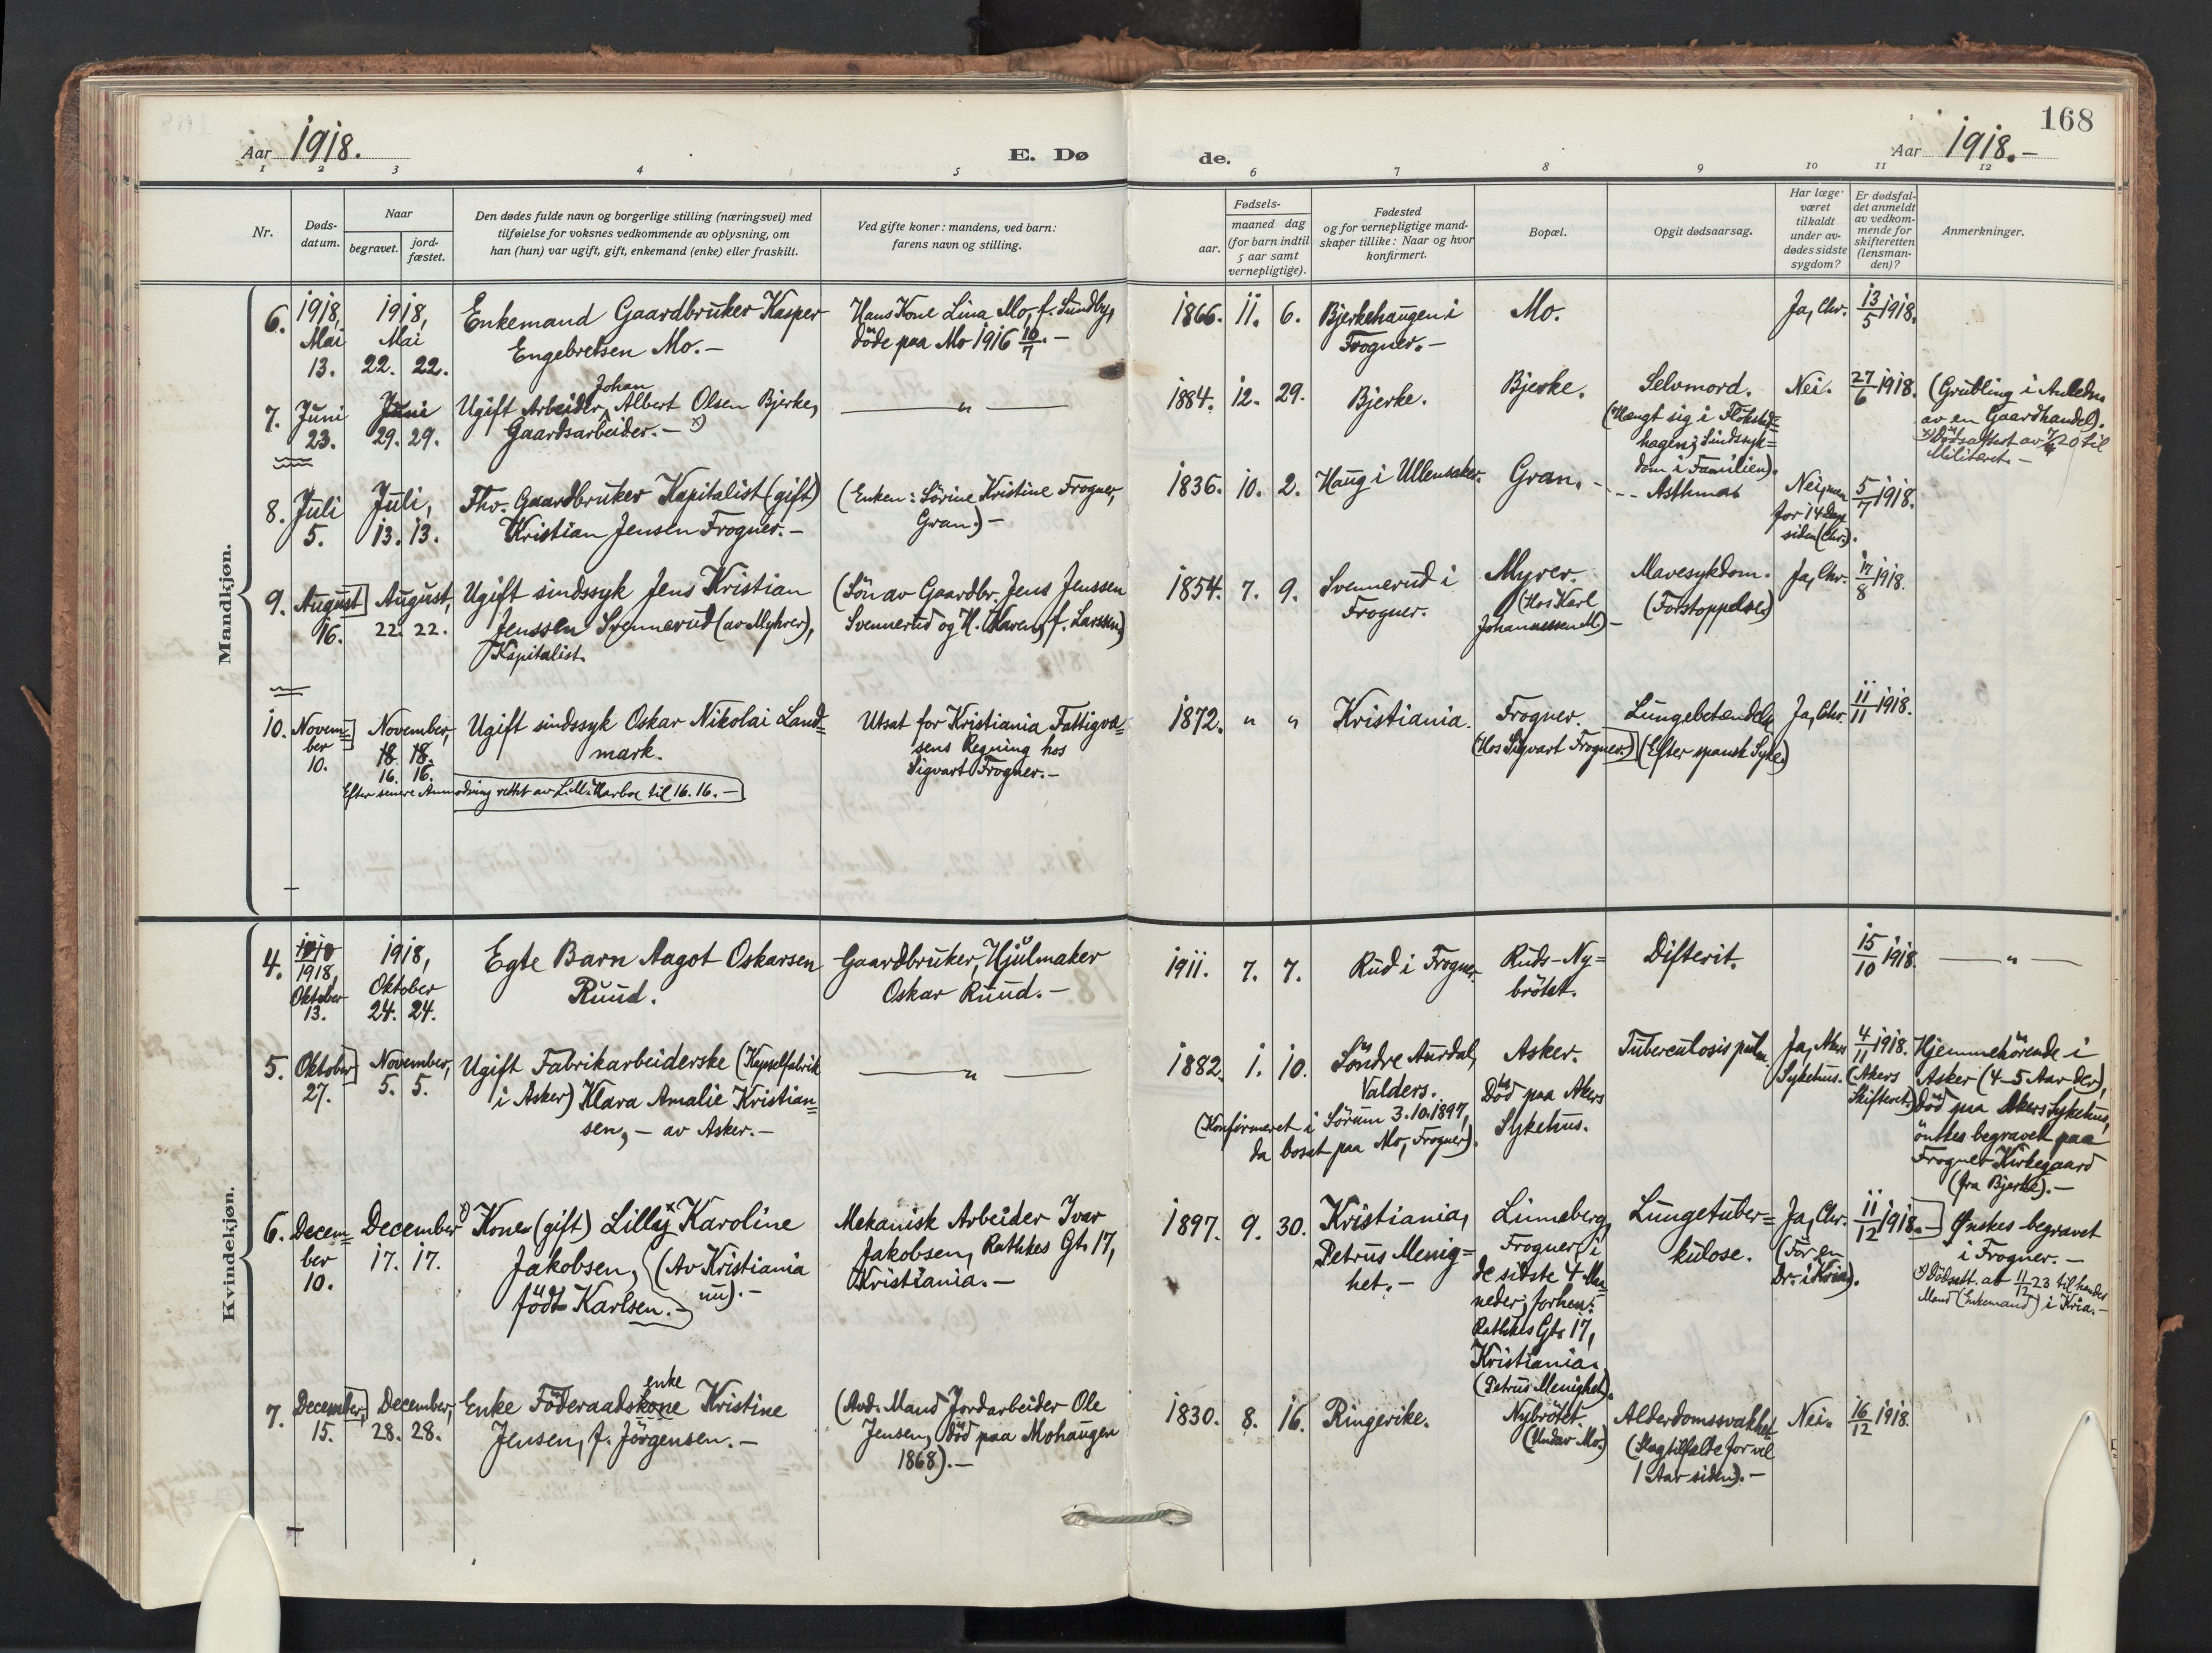 168
Aar 1918.
E. Dø
de.
Aar 1918.-
1 2 3 4 5 6 7 8 9 10 11 12
Nr.
Døds-
datum.
Naar
begravet.
jord-
fæstet.
Den dødes fulde navn og borgerlige stilling (næringsvei) med
tilføielse for voksnes vedkommende av oplysning, om
han (hun) var ugift, gift, enkemand (enke) eller fraskilt.
Ved gifte koner: mandens, ved barn:
farens navn og stilling.
Fødsels-
aar.
maaned dag
(for barn indtil
5 aar samt
vernepligtige).
Fødested
og for vernepligtige mand-
skaper tillike: Naar og hvor
konfirmert.
Bopæl.
Opgit dødsaarsag.
Har læge
været
tilkaldt
under av-
dødes sidste
sygdom?
Er dødsfal-
det anmeldt
av vedkom-
mende for
skifteretten
(lensman-
den)?
Anmerkninger.
Mandkjøn.
6.
1918,
Mai
13.
1918,
Mai
22. 22.
Enkemand Gaardbruker Kasper
Engebretsen Mo.-
Hans Kone Lina Mo, f. Sundby,
döde paa Mo 1916 10/7.-
1866. 11. 6.
Bjerkehaugen i
Frogner.-
Mo.
Ja, Chr.
13/5 1918.
7.
Juni
23.
Juni
29. 29.
Johan
Ugift Arbeider, Albert Olsen Bjerke,
Gaardsarbeider.- x)
— " —
1884. 12. 29.
Bjerke.
Bjerke.
Selvmord.
(Hængt sig i
hagen; Sindssyk=
dom i Familien).
Nei.
27/6 1918.
(Grubling i Anledn.
av en Gaardhandel).
x) Dödsattest av 20 til
Militæret.-
8.
Juli
5.
Juli,
13. 13.
Fhv. Gaardbruker Kapitalist (gift)
Kristian Jensen Frogner.-
(Enken: Sörine Kristine Frogner,
Gran.)-
1836. 10. 2.
Haug i Ullensaker.
Gran.
- Asthma
Nei, men
for 14 Dage
siden (Chr.).
5/7 1918.
9.
August
16.
August,
22. 22.
Ugift sindssyk Jens Kristian
Jenssen Svennerud (av Myhrer),
Kapitalist.
(Sön av Gaardbr. Jens Jenssen
Svennerud og H. Karen, f. Larssen)
1854. 7. 9.
Svennerud i
Frogner.
Myrer.
(Hos Karl
Johannessen M.)-
Mavesykdom.
(Forstoppelse)
Ja, Chr.
17/8 1918.
10.
Novem=
ber
10.
November,
18. 18.
16. 16.
Ugift sindssyk Oskar Nikolai Land=
mark.
Efter senere Anmodning rettet av L. M. Harboe til 16. 16.-
Utsat for Kristiania Fattigvæ=
sens Regning hos
Sigvart Frogner.-
1872. " "
Kristiania.
Frogner.
(Hos Sigvart Frogner.)
Lungebetændelse
(Efter spansk Syke)
Ja, Chr.
11/11 1918.
Kvindekjøn.
4.
1918,
Oktober
13.
1918,
Oktober
24. 24.
Egte Barn Aagot Oskarsen
Ruud.
Gaardbruker, Hjulmaker
Oskar Ruud.-
1911. 7. 7.
Rud i Frogner.
Ruds-Ny=
brötet.
Difterit.
15/10 1918
— " —
5.
Oktober
27.
November,
5. 5.
Ugift Fabrikarbeiderske (Kapselfabrik
i Asker) Klara Amalie Kristian=
sen, - av Asker.-
— " —
1882. 1. 10.
Söndre Aurdal,
Valders.
(Konfirmeret i Sörum 3.10.1897,
da bosat paa Mo, Frogner).
Asker.
Död paa Akers
Sykehus.
Tuberculosis pulm.
Ja, Akers
Sykehus.
4/11 1918.
(Akers
Skifteret)
Hjemmehörende i
Asker (4-5 Aar der),
död paa Akers Sykehus,
önskes begravet paa
Frogner Kirkegaard
(fra Bjerke).-
6.
Decem=
ber
10.
December
17. 17.
x) Kone (gift) Lilly Karoline
Jakobsen, (Av Kristiania
nu).-
födt Karlsen.-
Mekanisk Arbeider Ivar
Jakobsen, Rathkes Gt. 17,
Kristiania.-
1897. 9. 30.
Kristiania,
Petrus Menig=
het.-
Linneberg,
Frogner, i
de sidste 4 Maa=
neder; forhen:
Rathkes Gt. 17,
Kristiania.
(Petrus Menighet).
Lungetuber=
kulose.
Ja, Chr.
(För en
Dr. i Kria).
11/12 1918.-
Ønskes begravet
i Frogner.-
x) Dödsatt. av 11/12 23 til hendes
Mand (Enkemand) i Kria.-
7.
December,
15.
December,
28. 28.
enke
Enke Föderaadskone Kristine
Jensen, f. Jörgensen.-
(Avd. Mand Jordarbeider Ole
Jensen, död paa Mohaugen
1868).-
1830. 8. 16.
Ringerike.
Nybrötet.
(Under Mo.)
Alderdomssvakhet
(Slagtilfælde for vel
1 Aar siden).-
Nei.
16/12 1918.